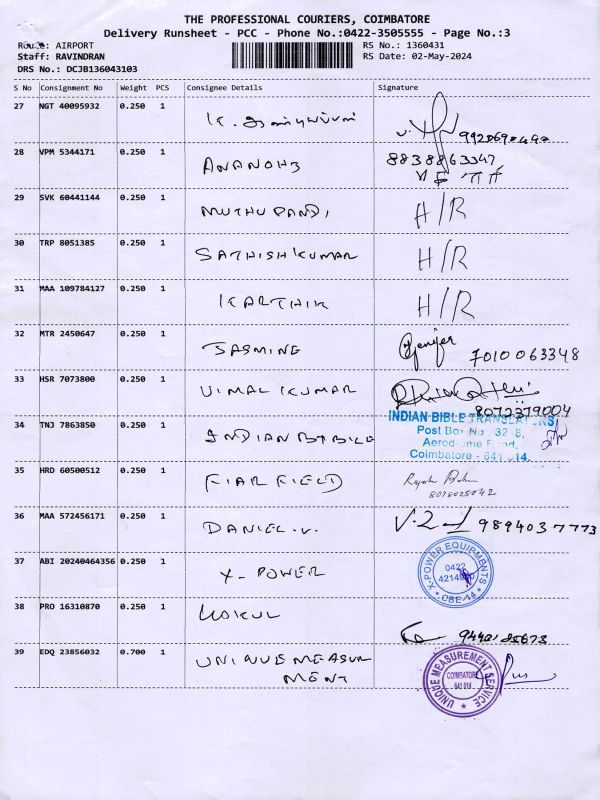 THE PROFESSIONAL COURIERS, COIMBATORE
Delivery Runsheet - PCC - Phone No.:0422-3505555 - Page No.:3
Route: AIRPORT RS No.: 1360431
Staff: RAVINDRAN RS Date: 02-May-2024
DRS No.: DCJB136043103
S No Consignment No Weight PCS Consignee Details Signature
27 NGT 40095932 0.250 1 K.
28 VPM 5344171 0.250 1 8838863347
29 SVK 60441144 0.250 1 MUTHU PANDI H/R
30 TRP 8051385 0.250 1 SATHISH KUMAR H/R
31 MAA 109784127 0.250 1 KARTHIK H/R
32 MTR 2450647 0.250 1 JASMINE Jenifer 7010063348
33 HSR 7073800 0.250 1 VIMAL KUMAR 8072379004
34 TNJ 7863850 0.250 1 INDIAN BIBLE
INDIAN BIBLE TRANSLATORS
Post Box No
Aerodrome Road,
Coimbatore - 641 014.
35 HRD 60500512 0.250 1 FIAR FIELD
36 MAA 572456171 0.250 1 DANIEL.V. 9894037773
37 ABI 20240464356 0.250 1 X-POWER
X-POWER EQUIPMENTS
0422
CBE-14
38 PRO 16310870 0.250 1
39 EDQ 23856032 0.700 1 UNIQUE MEASUR
MENT
UNIQUE MEASUREMENT SERVICE
COIMBATORE
641 014